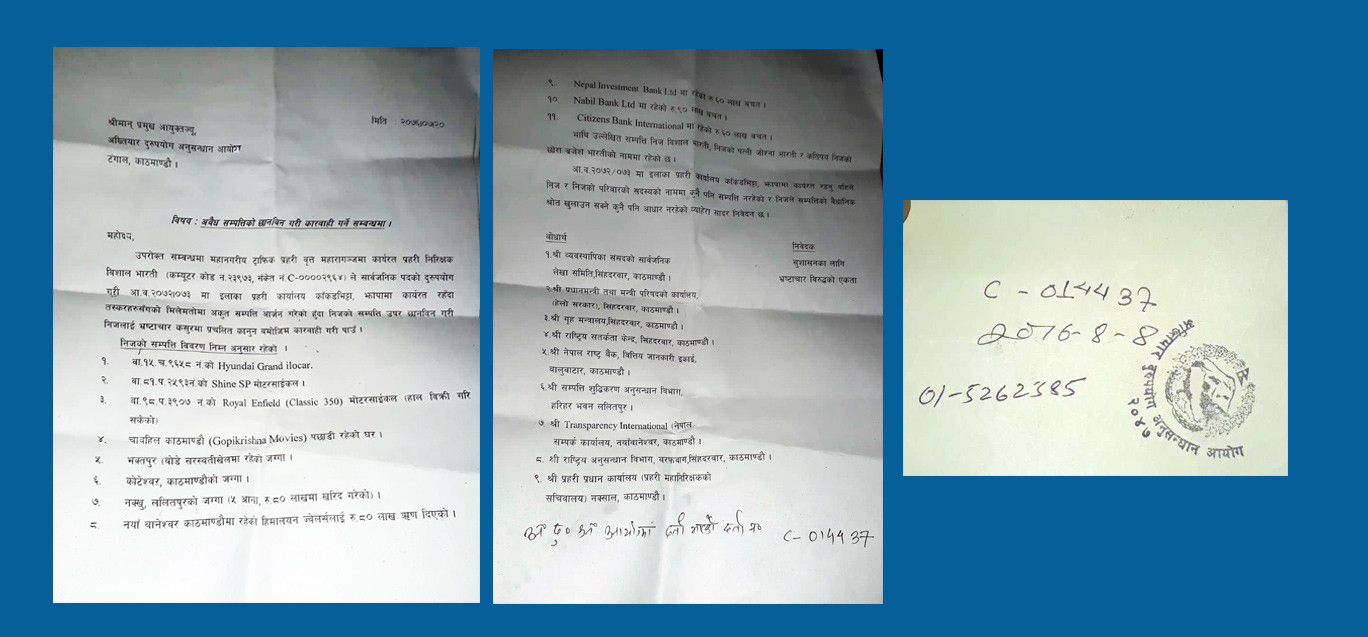 मिति : २०७६।०५।२०
श्रीमान् प्रमुख आयुक्तज्यू,
अख्तियार दुरुपयोग अनुसन्धान आयोग
टंगाल, काठमाण्डौ ।
विषय : अवैध सम्पत्तिको छानविन गरी कारवाही गर्ने सम्बन्धमा ।
महोदय,
उपरोक्त सम्बन्धमा महानगरीय ट्राफिक प्रहरी वृत्त महाराजगञ्जमा कार्यरत प्रहरी निरिक्षक
विशाल भारती (कम्प्यूटर कोड नं.२३९७३, संकेत नं C-००००२९६४) ले सार्वजनिक पदको दुरुपयोग
गरी आ.व २०७२।०७३ मा इलाका प्रहरी कार्यालय कांकडभिट्टा, झापामा कार्यरत रहँदा
तस्करहरुसँगको मिलेमतोमा अकूत सम्पत्ति आर्जन गरेको हुँदा निजको सम्पत्ति उपर छानविन गरी
निजलाई भ्रष्टाचार कसुरमा प्रचलित कानुन बमोजिम कारवाही गरी पाउँ ।
निजको सम्पत्ति विवरण निम्न अनुसार रहेको ।
१. बा.१५.च.९६५८ नं.को Hyundai Grand ilocar.
२. बा.८१.प.२५९३नं.को Shine SP मोटरसाईकल ।
३. बा.९८.प.३९०७ नं.को Royal Enfield (Classic 350) मोटरसाईकल (हाल बिक्री गरि
सकेको)
४. चावहिल काठमाण्डौ (Gopikrishna Movies) पछाडी रहेको घर ।
५. भक्तपुर (बोडे सरस्वतीखेलमा रहेको जग्गा ।
६. कोटेश्वर, काठमाण्डौको जग्गा ।
७. नक्खु, ललितपुरको जग्गा (५ आना, रु.८० लाखमा खरिद गरेको) ।
८. नयाँ बानेश्वर काठमाण्डौमा रहेको हिमालयन ज्वेलर्सलाई रु.८० लाख ऋण दिएको ।
९. Nepal Investment Bank Ltd मा रहेको रु ६० लाख बचत ।
१०. Nabil Bank Ltd मा रहेको रु ९० लाख बचत ।
११. Citizens Bank International मा रहेको रु ६० लाख बचत ।
माथि उल्लेखित सम्पत्ति निज विशाल भारती, निजको पत्नी भारती र कतिपय निजको
छोरा ब्रजेश भारतीको नाममा रहेको छ ।
आ.व.२०७२/०७३ मा इलाका प्रहरी कार्यालय कांकडभिट्टा, झापामा कार्यरत रहनु पहिले
निज र निजको परिवारको सदस्यको नाममा कुनै पनि सम्पत्ति नरहेको र निजले सम्पत्तिको वैधानिक
श्रोत खुलाउन सक्ने कुनै पनि आधार नरहेको व्यहोरा सादर निवेदन छ ।
बोधार्थ
१.श्री व्यवस्थापिका संसदको सार्वजनिक
लेखा समिति,सिंहदरवार, काठमाण्डौ ।
२.श्री प्रधानमन्त्री तथा मन्त्री परिषदको कार्यालय,
(हेलो सरकार), सिंहदरवार, काठमाण्डौ ।
३.श्री गृह मन्त्रालय,सिंहदरवार, काठमाण्डौ ।
४.श्री राष्ट्रिय सतर्कता केन्द्र, सिंहदरवार, काठमाण्डौ ।
५.श्री नेपाल राष्ट्र बैंक, वित्तिय जानकारी इकाई,
बालुवाटार, काठमाण्डौ ।
६.श्री सम्पत्ति शुद्धिकरण अनुसन्धान विभाग,
हरिहर भवन ललितपुर ।
७. श्री Transparency International (नेपाल
सम्पर्क कार्यालय, नयाँवानेश्वर, काठमाण्डौ ।
८. श्री राष्ट्रिय अनुसन्धान विभाग, बरफबाग,सिंहदरवार, काठमाण्डौ ।
९. श्री प्रहरी प्रधान कार्यालय (प्रहरी महानिरिक्षकको
सचिवालय) नक्साल, काठमाण्डौ ।
निवेदक
सुशासनका लागि
भ्रष्टाचार विरुद्धको एकता
अ० दु० अ० आयोगमा दर्ता भएको दर्ता नं० C-014437
C-014437
2076-8-8
01-5262385
अख्तियार दुरुपयोग अनुसन्धान आयोग
२०४७